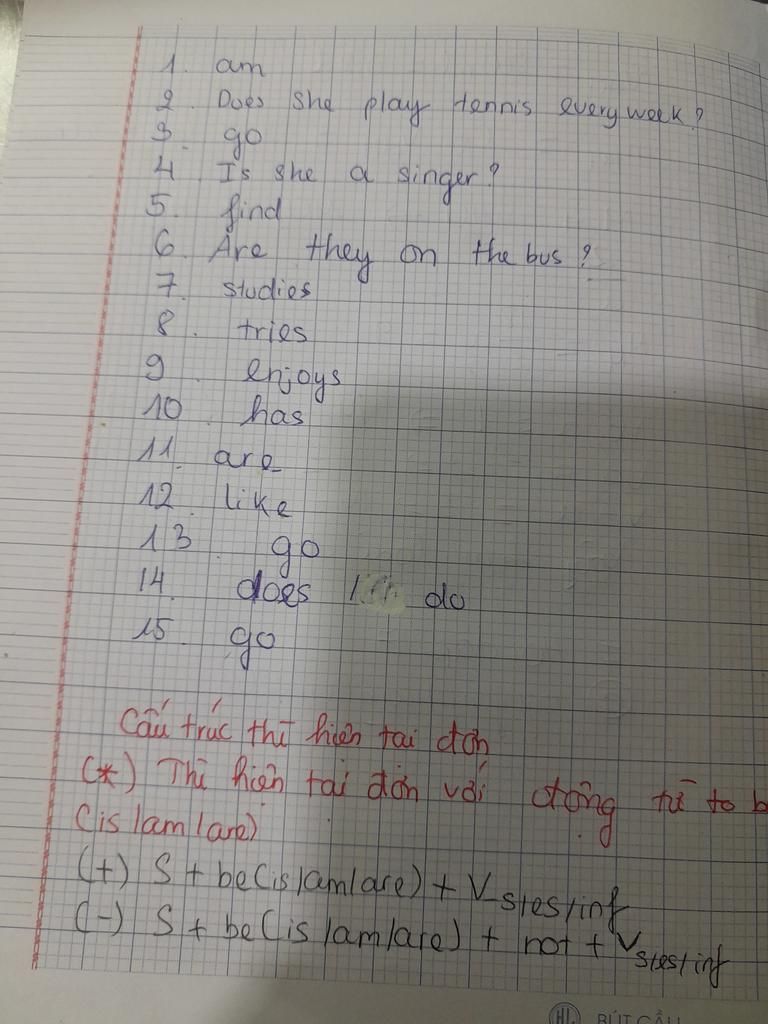 1. am
2. Does she play tennis every week?
3. go
4. Is she a singer?
5. find
6. Are they on the bus?
7. studies
8. tries
9. enjoys
10. has
11. are
12. like
13. go
14. does / do
15. go
Cấu trúc thì hiện tại đơn
(*) Thì hiện tại đơn với động từ to b
(is/am/are)
(+) S + be(is/am/are) + Vs/es/inf
(-) S + be(is/am/are) + not + Vs/es/inf
BÚT